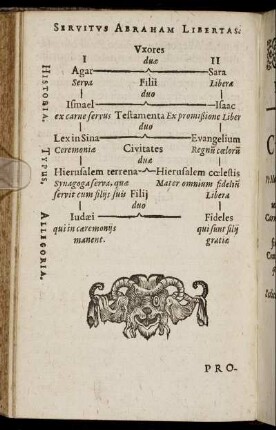 SERVITVS ABRAHAM LIBERTAS.
Vxores
I duæ II
Agar Sara
Serva Filii Liberæ
duo
Ismael Isaac
ex carne servus Testamenta Ex promissione Liber
duo
Lex in Sina Evangelium
Ceremoniæ Civitates Regnũ cœlorũ
duæ
Hierusalem terrena Hierusalem cœlestis
Synagoga serva, quæ Mater omnium fideliũ
servit cum filijs suis Filij Libera
duo
Iudæi Fideles
qui in cæremonijs qui sunt filij
manent. gratiæ
HISTORIA. TYPUS, ALLEGORIA.
PRO-